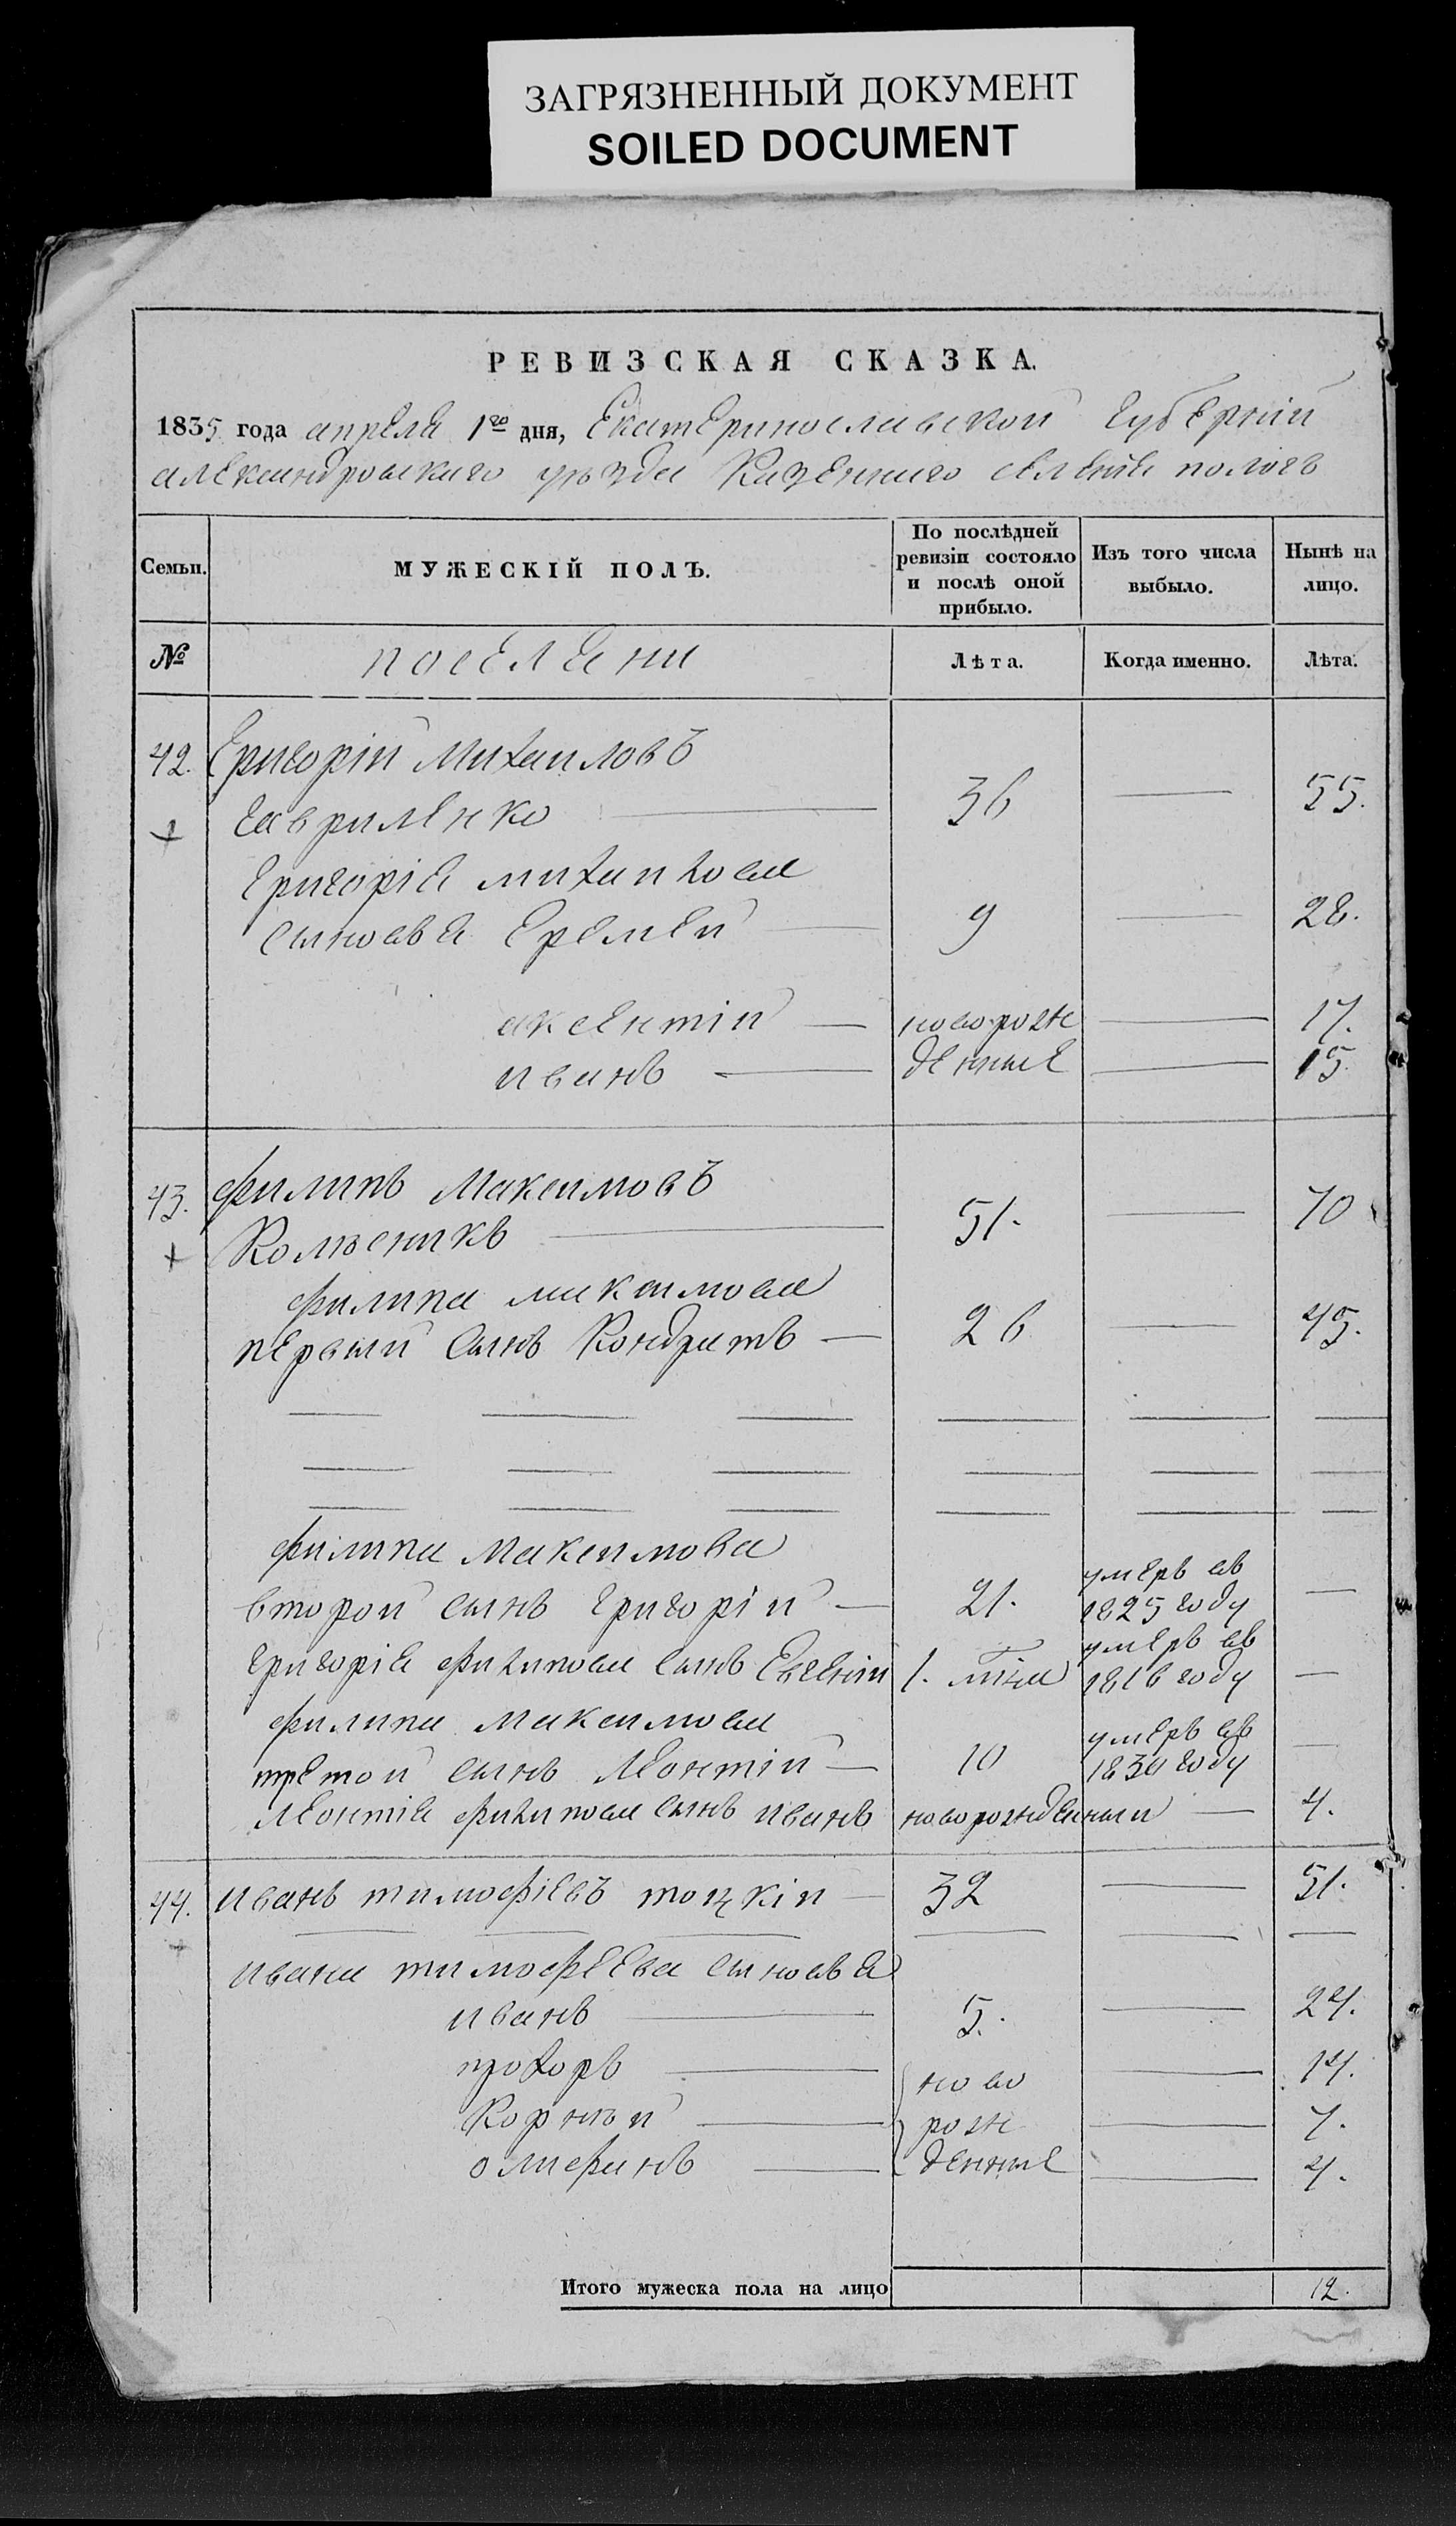 ЗАГРЯЗНЕННЫЙ ДОКУМЕНТ
SOILED DOCUMENT
РЕВИЗСКАЯ СКАЗКА.
1835 года апреля 1го дня, Екатеринославской Губернии
александровскаго уѣзда Казеннаго селения пологъ
Семьи. МУЖЕСКІЙ ПОЛЪ. По послѣдней ревизіи состояло и послѣ оной прибыло. Изъ того числа выбыло. Нынѣ на лицо.
№ поселяни Лѣта. Когда именно. Лѣта.
42. Григорій Михаиловъ
Гавриленко — 36 — 55.
Григорія михаилова
сыновья Еремей — 9 — 28.
аксентій — новорож — 17.
иванъ — денные — 15.
43. филипъ Максимовъ
Колѣсникъ — 51. — 70
филипа максимова
первый сынъ Кондратъ — 26 — 45.
филипа Максимова
второй сынъ григорій — 21. умеръ въ 1825 году —
григорія филипова сынъ Евгеній 1. умеръ въ 1816 году —
филипа максимова
третой сынъ Леонтій — 10 умеръ въ 1834 году —
Леонтія филипова сынъ иванъ новорожденный — 4.
44. иванъ тимофіевъ тоцкій — 32 — 51.
ивана тимофеева сыновья
иванъ — 5. — 24.
прохоръ — ново — 14.
Корнѣй — рож — 7.
олифанъ — денные — 4.
Итого мужеска пола на лицо 12.